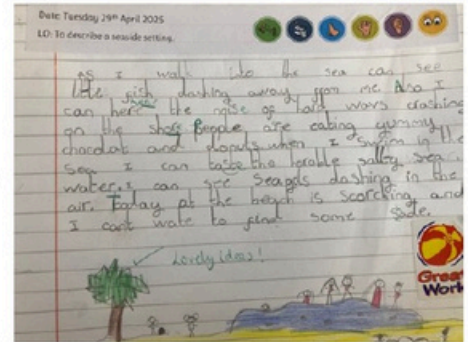 Date: Tuesday 29th April 2025
LO: To describe a seaside setting.
As I walk into the sea can see
little fish dashing away from me. Also I
can here the noise of loud wavs crashing
on the shore. Beople are eating yummy
chocolat and donuts when I swim in the
sea I can taste the horable salty sea
water. I can see seaguls dashing in the
air. Today at the beach is scorching and
I cant wate to find some sade.
Lovely ideas!
Great
Work